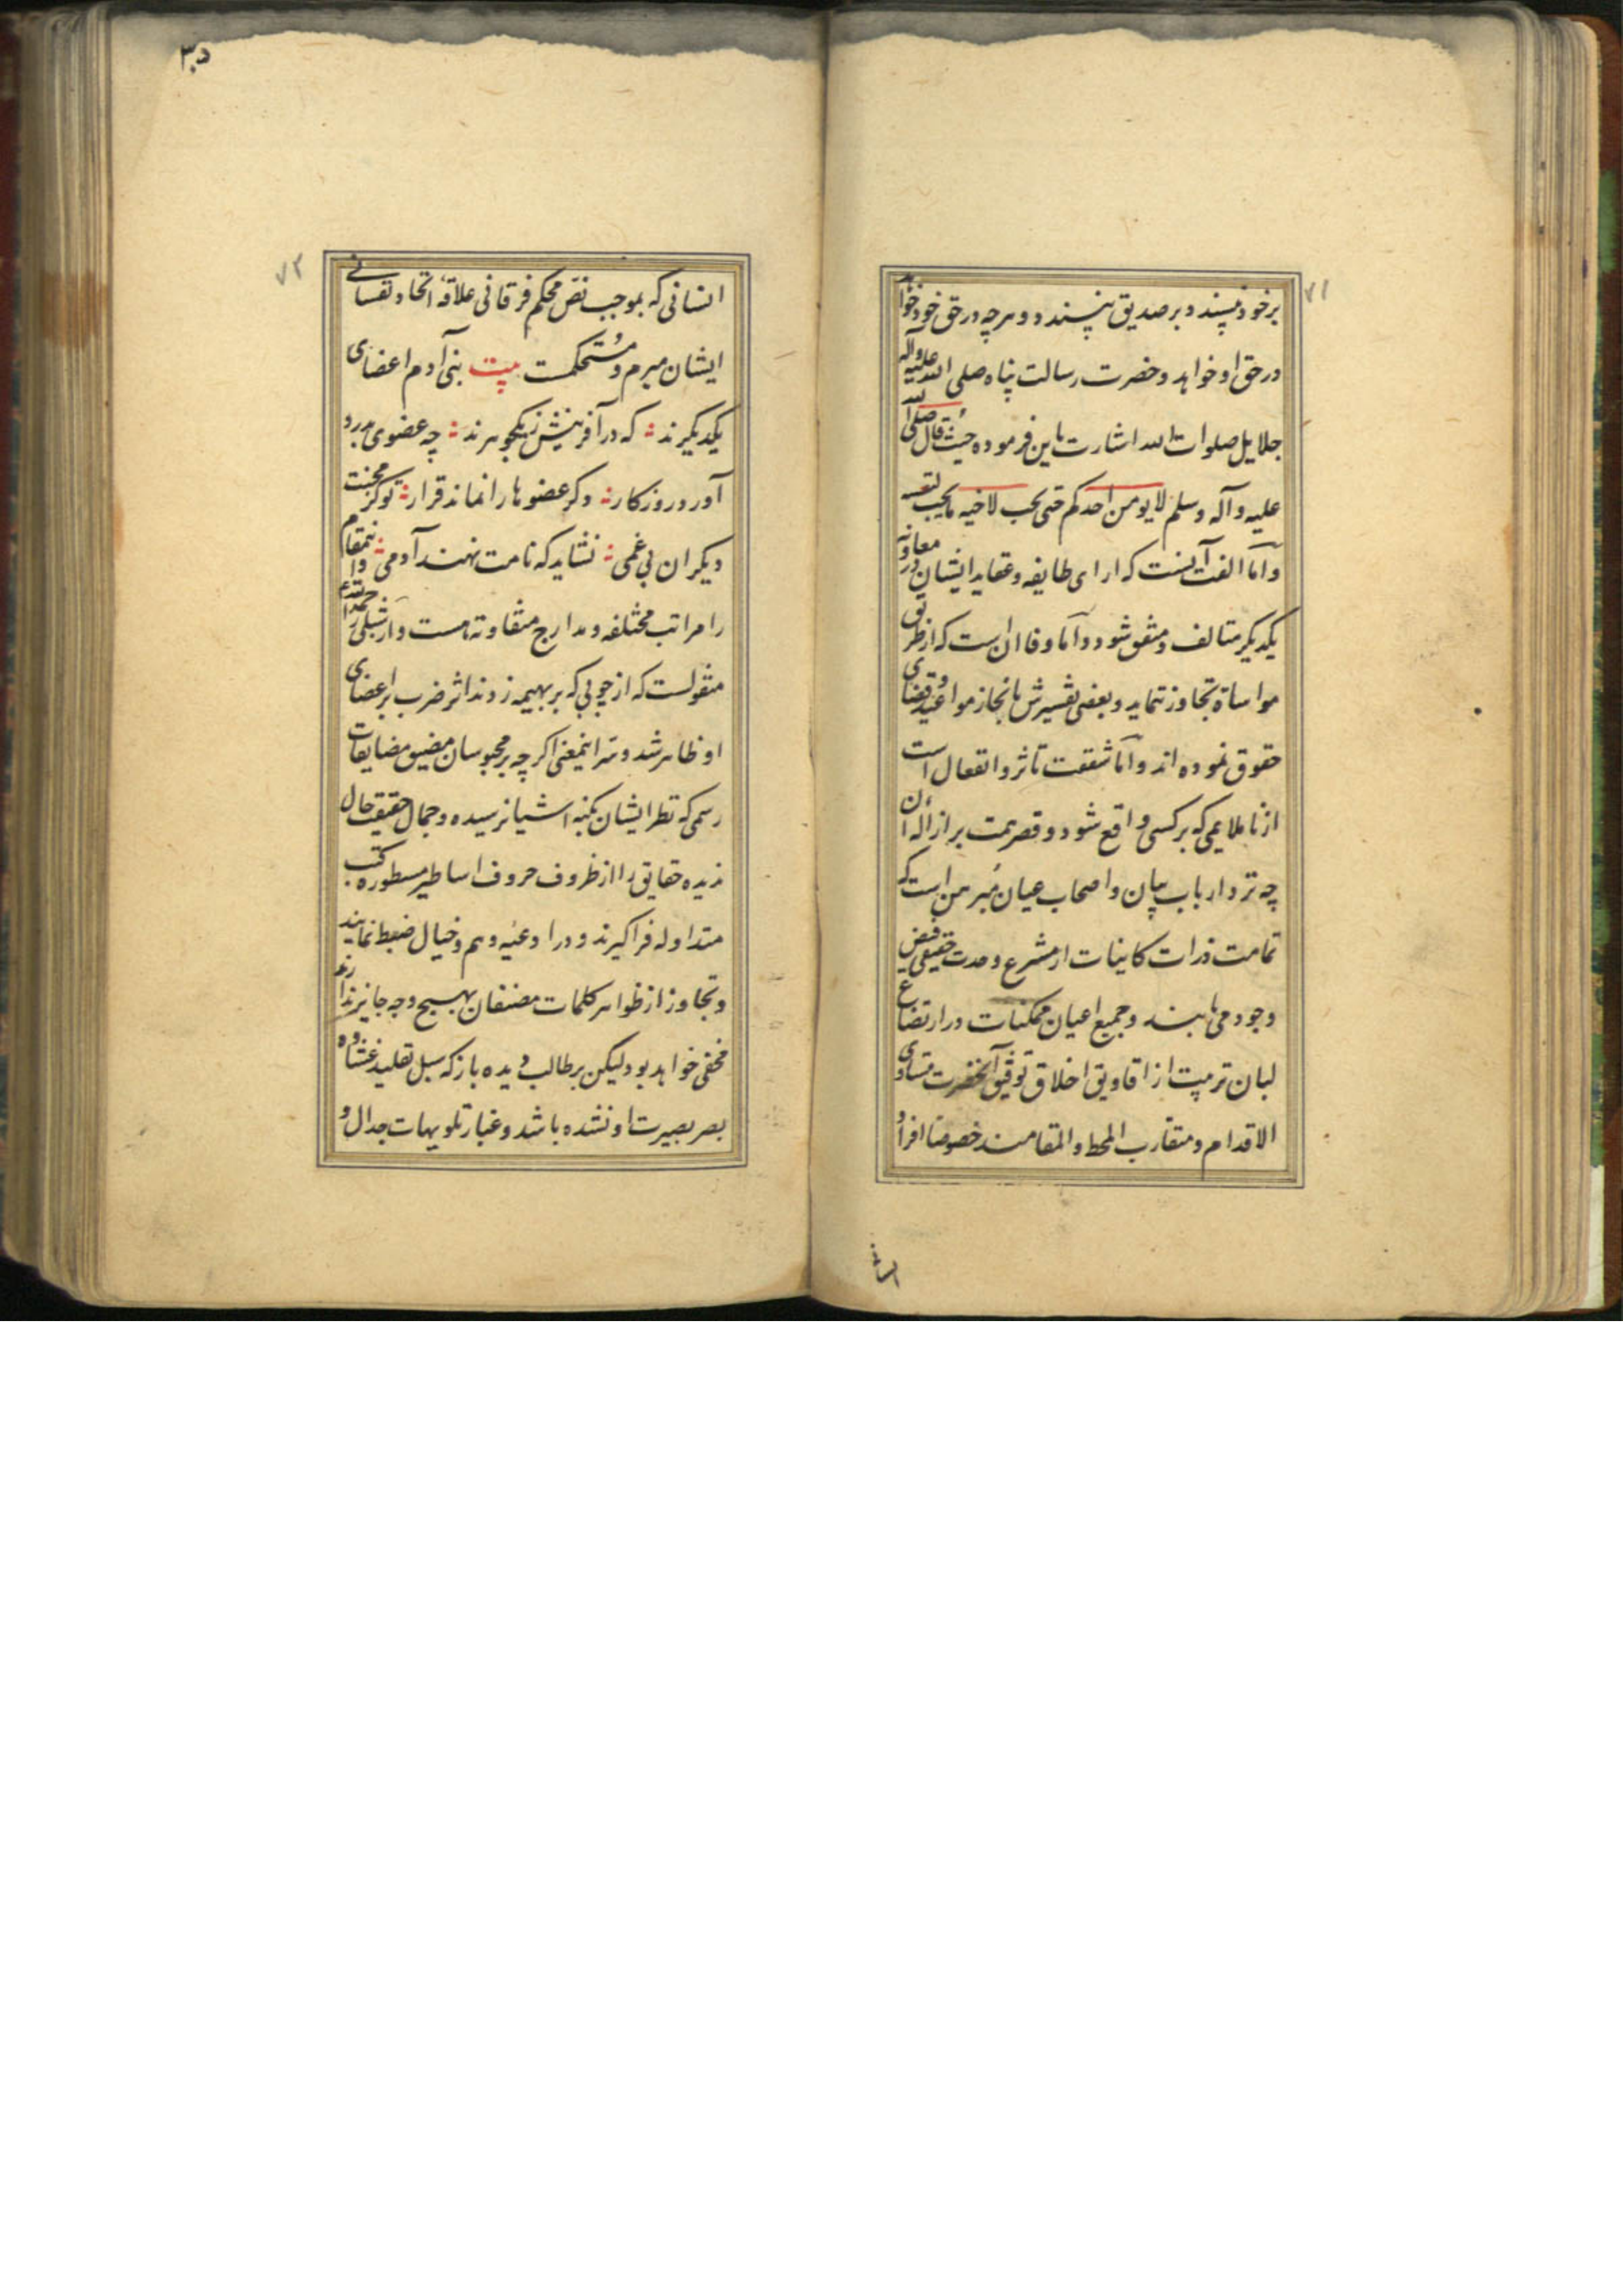 ۷۱
بر خود نپسندد بر صدیق نپسندد و هرچه در حق خود خواهد
در حق او خواهد و حضرت رسالت پناه صلی الله علیه وآله
جلایل صلوات الله اشارت باین فرموده حیث قال صلی الله
علیه وآله وسلم لا یومن احدکم حتی یحب لاخیه ما یحب لنفسه
و اما الفت آنست که ارای طایفه و عقاید ایشان در معاونه
یکدیکر متالف و متفق شود و اما وفا ان است که از طریق
مواساة تجاوز ننماید و بعضی تفسیرش بانجاز مواعید و قضای
حقوق نموده اند و اما شفقت تاثر و انفعال است
از ناملایمی که بر کسی واقع شود و قصر همت بر ازاله آن
چه نزد ارباب بیان و اصحاب عیان مبرهن است که
تمامت ذرات کاینات از مشرع وحدت حقیقی فیض
وجود می یابند و جمیع اعیان ممکنات در ارتضاع
لبان تربیت از افاویق اخلاق توفیق آنحضرت متساوی
الاقدام و متقارب المحط والمقامند خصوصا افراد
انسانی
۳۵
۷۲
انسانی که بموجب نص محکم فرقانی علاقه اتحاد نفسانی
ایشان مبرم و مستحکمست بیت بنی آدم اعضای
یکدیکرند که در آفرینش ز یکجوهرند چه عضوی بدرد
آورد روزکار دکر عضوها را نماند قرار تو کز محنت
دیکران بی غمی نشاید که نامت نهند آدمی و اینمقام
را مراتب مختلفه و مدارج متفاوته هست و از شبلی رحمه الله
منقولست که از چوبی که بر بهیمه زدند اثر ضرب بر اعضای
او ظاهر شد و سر اینمعنی اکرچه بر محبوسان مضیق مضایقات
رسمی که نظر ایشان بکنه اشیا نرسیده و جمال حقیقت حال
ندیده حقایق را از ظروف حروف اساطیر مسطوره کتب
متداوله فرا کیرند و در اوعیه وهم و خیال ضبط نمایند
و تجاوز از ظواهر کلمات مصنفان بهیچ وجه جایز ندارند
مخفی خواهد بود لیکن بر طالب دیده باز که سبل تقلید غشاوه
بصر بصیرت او نشده باشد و غبار تلویهات جدال و